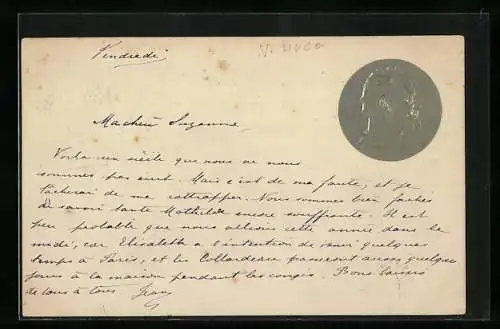 Vendredi
V. HUGO
Ma chère Suzanne
Voilà un siècle que nous ne nous
sommes pas écrit. Mais c'est de ma faute, et je
tâcherai de me rattraper. Nous sommes bien fâchés
de savoir tante Mathilde encore souffrante. Il est
peu probable que nous allions cette année dans le
midi, car Elisabeth a l'intention de venir quelque
temps à Paris, et les Collardeau passeront aussi quelques
jours à la maison pendant les congés. Bons baisers
de tous à tous Jean